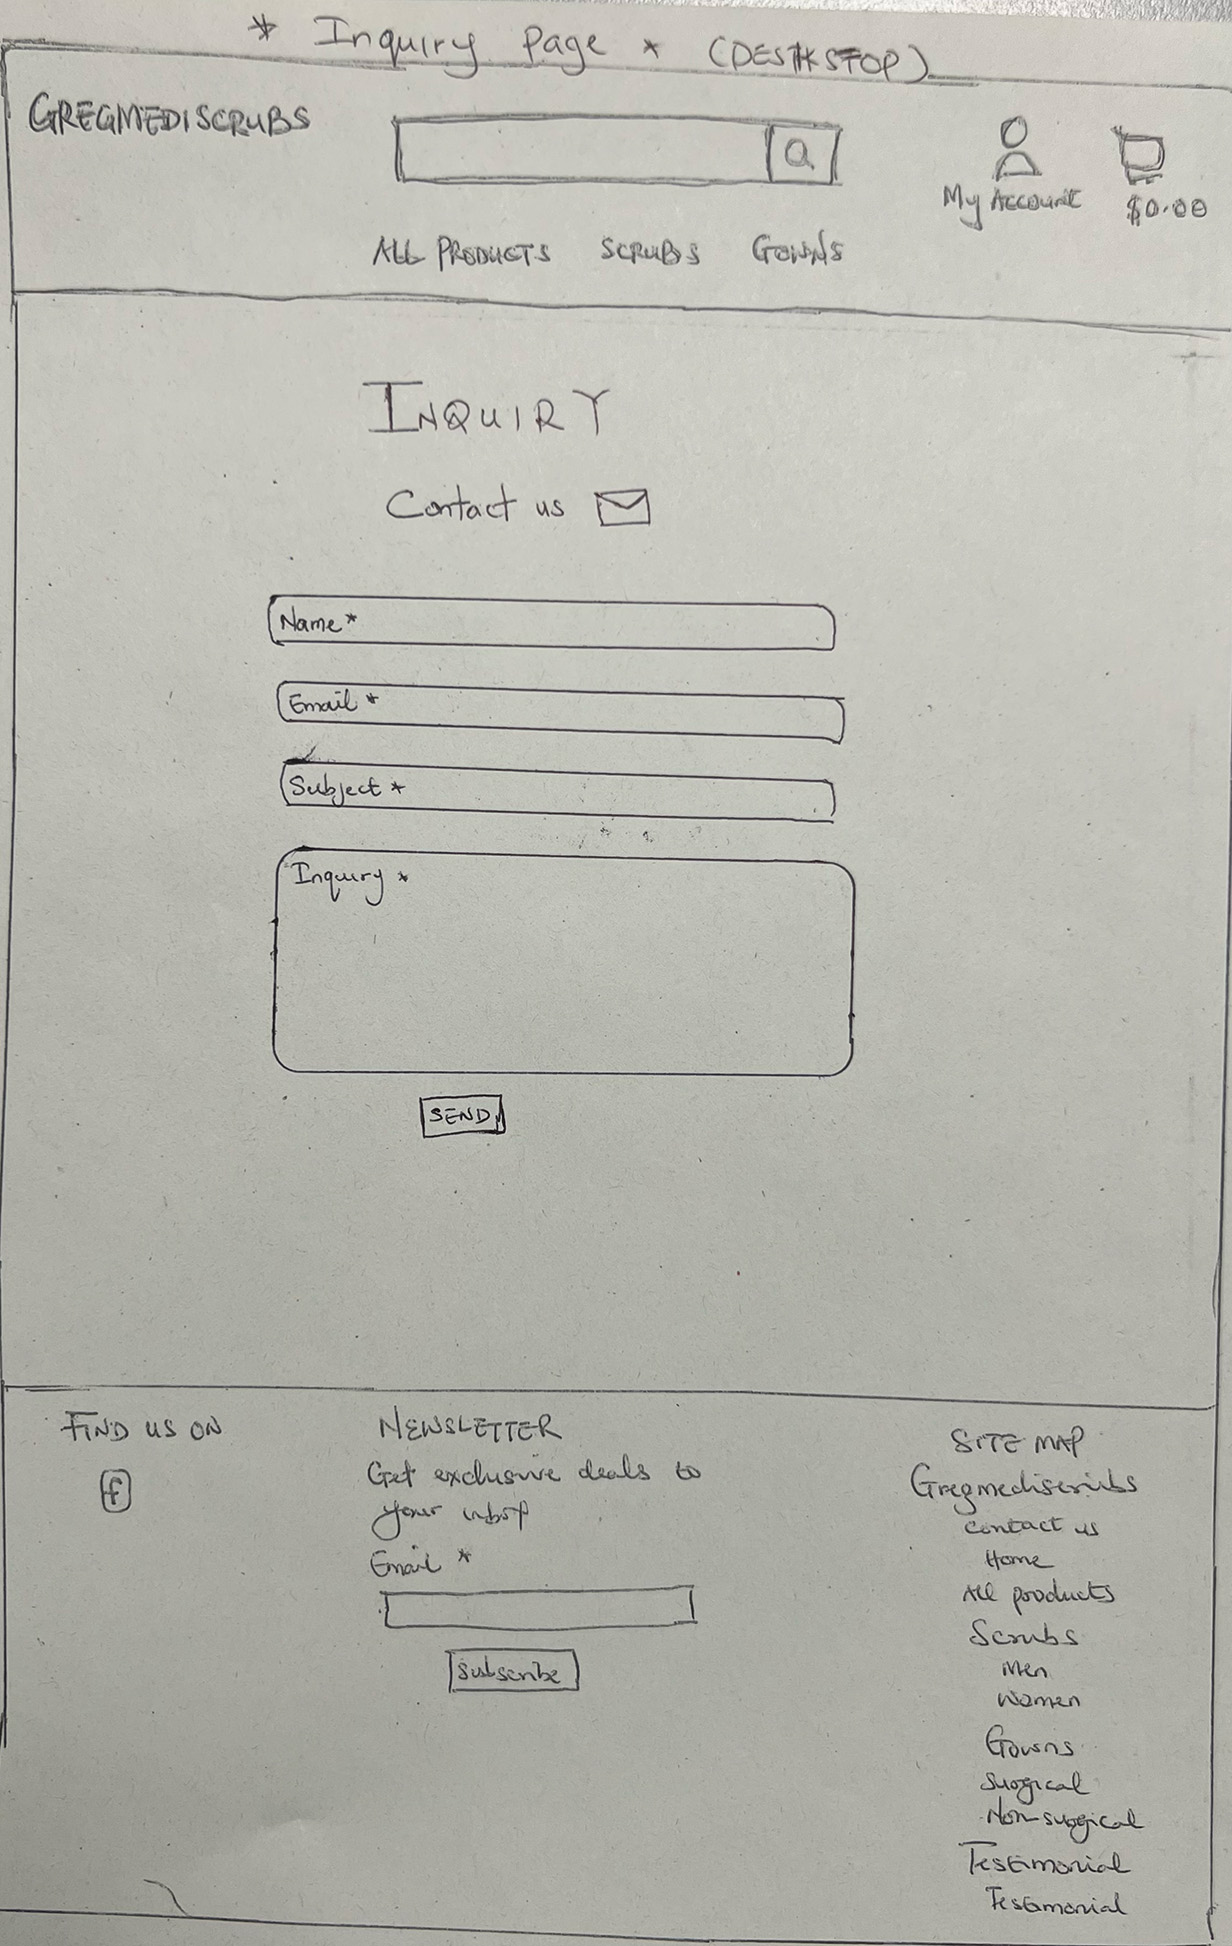 * Inquiry Page * (DESKSTOP)
GREGMEDISCRUBS
My Account
$0.00
ALL PRODUCTS SCRUBS GOWNS
INQUIRY
Contact us
Name *
Email *
Subject *
Inquiry *
SEND
FIND US ON
f
NEWSLETTER
Get exclusive deals to
your inbox
Email *
Subscribe
SITE MAP
Gregmediscrubs
contact us
Home
All products
Scrubs
Men
Women
Gowns
Surgical
Non-surgical
Testimonial
Testimonial